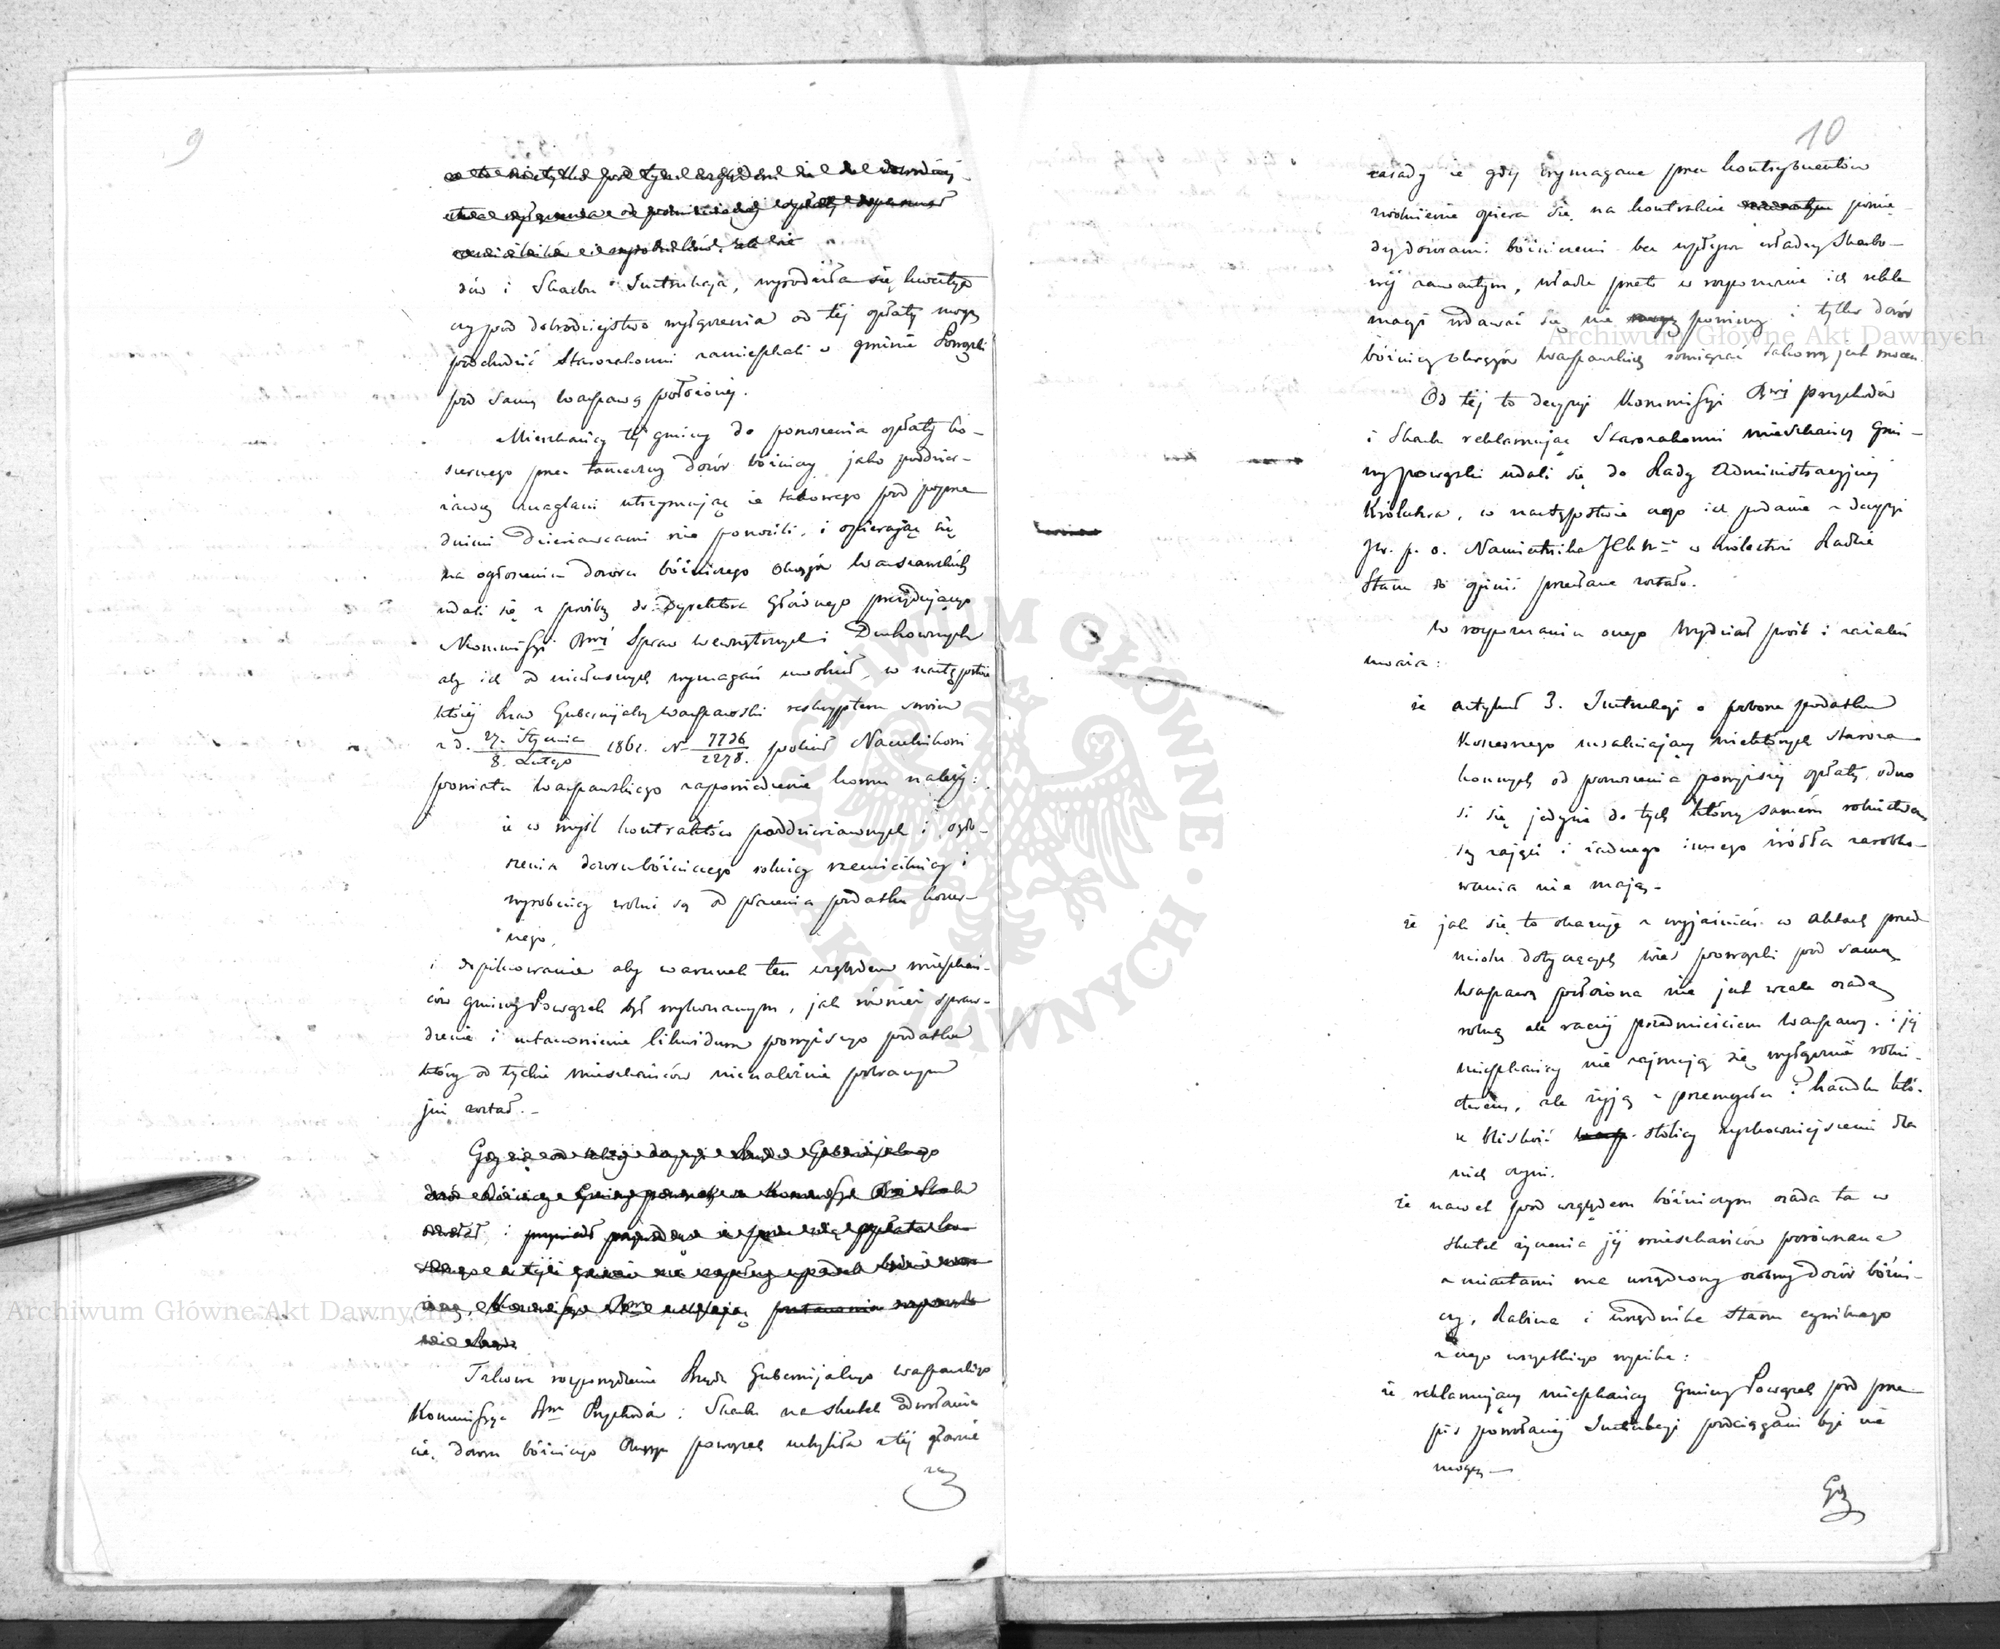 9
dów i Skarbu Instrukcja, wyrodziła się kwestya
czy pod dobrodziejstwo wyłączenia od tej opłaty mogą
podchodzić Starozakonni zamieszkali w gminie Powązki
pod samą Warszawą położonej.
Mieszkańcy tej gminy do ponoszenia opłaty ko-
szernego przez tameczny dozór bóżniczy jako poddzier-
żawcę znaglani utrzymując że takowego pod poprze
dnimi dzierżawcami nie ponosili, i opierając się
na ogłoszeniu dozoru bóżniczego Okręgów Warszawskich
udali się z prośbą do Dyrektora Głównego prezydującego
w Kommissyi Rząej Spraw Wewnętrznych i Duchownych
aby ich od niesłusznych wymagań uwolnił, w następstwie
której Rząd Gubernijalny Warszawski reskryptem swoim
z d. 27. Stycznia / 8. Lutego 1861. N 7736 / 2278. polecił Naczelnikowi
powiatu Warszawskiego zapowiedzenie komu należy:
że w myśl kontraktów poddzierżawnych i ogło-
szenia dozoru bóżniczego rolnicy rzemieślnicy i
wyrobnicy wolni są od płacenia podatku koszer-
nego,
i dopilnowanie aby warunek ten względem mieszkań-
ców gminy Powązek był wykonanym, jak również spraw-
dzenie i ustanowienie likwidum powyższego podatku
który od tychże mieszkańców nienależnie pobranym
już został. -
Takowe rozporządzenie Rządu Gubernijalnego Warszawskiego
Kommissya Rząa Przychodów i Skarbu na skutek odwołania
się dozoru bóżniczego Okręgu powązek uchyliła z tej głównie
za
10
zasady że gdy wymagane przez kontrybuentów
zwolnienie opiera się na kontrakcie pomię-
dzy dozorami bóżniczemi bez wpływu władzy Skarbo-
wej zawartym, władze przeto w rozpoznanie ich rekla
macyi wdawać się nie powinny i tylko dozór
bóżniczy Okręgów Warszawskich rozwiązać takową jest mocen.
Od tej to decyzyi Kommissyi Rząej Przychodów
i Skarbu reklamując Starozakonni mieszkańcy Gmi-
ny powązki udali się do Rady Administracyjnej
Królestwa, w następstwie czego ich podanie z decyzyi
Jw. p. o. Namiestnika w Królestwie Radzie
Stanu do opinii przesłane zostało.
W rozpoznaniu onego Wydział próśb i zażaleń
uważa:
że artykuł 3. Instrukcyi o poborze podatku
Koszernego uwalniający niektórych staroza
konnych od ponoszenia powyższej opłaty, odno
si się jedynie do tych którzy samem rolnictwem
są zajęci i żadnego innego źródła zarobko-
wania nie mają -
że jak się to okazuje z wyjaśnień w aktach przed
miotu dotyczących wieś powązki pod samą
Warszawą położona nie jest wcale osadą
rolną ale raczej przedmieściem Warszawy. i jej
mieszkańcy nie zajmują się wyłącznie rolni-
ctwem, ale żyją z przemysłu i handlu któ-
re bliskość stolicy zyskowniejszemi dla
nich czyni.
że nawet pod względem bóżniczym osada ta w
skutek życzenia jej mieszkańców porównana
z miastami ma urządzony osobny dozór bóżni-
czy, Rabina i urzędnika Stanu cywilnego
z czego wszystkiego wynika:
że reklamujący mieszkańcy Gminy Powązek pod prze-
pis powołanej Instrukcyi podciągani być nie
mogą -
Gdy
Archiwum Główne Akt Dawnych
Archiwum Główne Akt Dawnych
ARCHIWUM GŁÓWNE AKT DAWNYCH